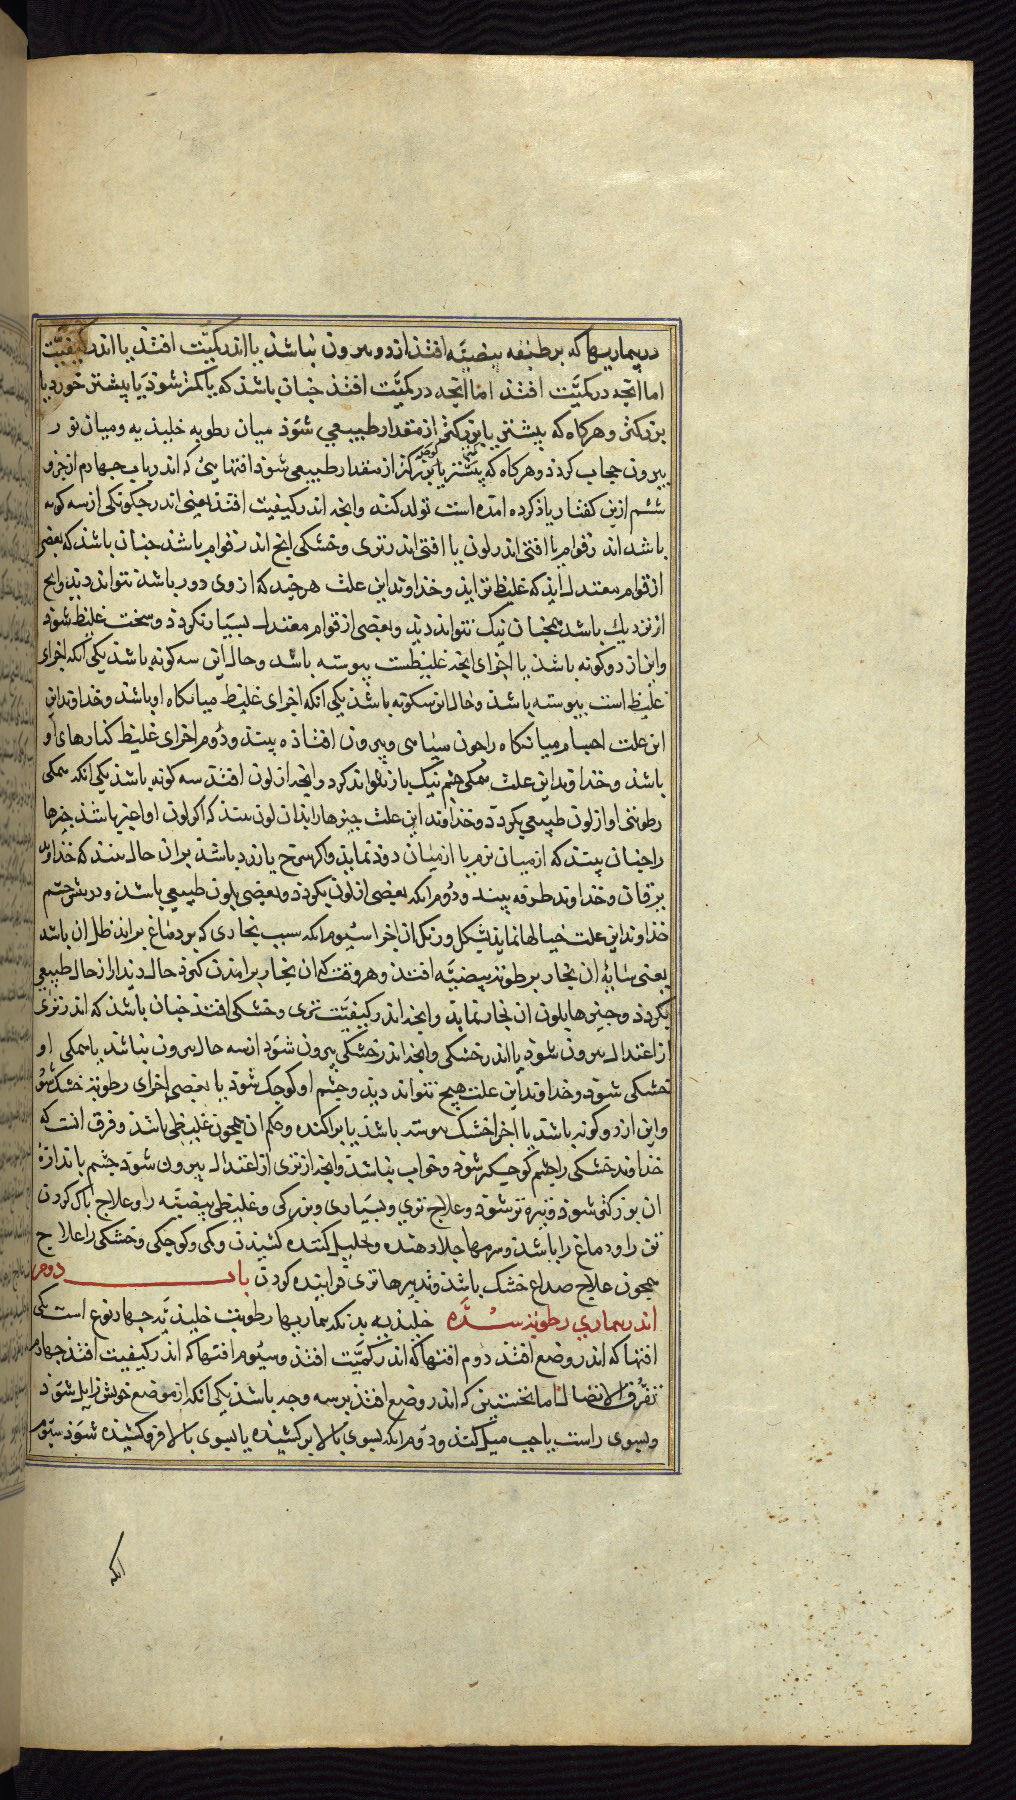 در بیماریها که بر طبقه بیضیّه افتذ از دو بیرون نباشذ یا اندر کمیّت افتذ یا اندر کیفیّت
اما انچه در کمیّت افتذ اما انچه در کمیّت افتذ جنان باشذ که یا کمتر شوذ یا بیشتر خورد یا
بزرکتر وهرکاه که بیشتر یا بزرکتر از مقدار طبیعی شوذ میان رطوبه جلیذیه ومیان نور
بیرون حجاب کردذ وهرکاه که کمتر یا کوجکتر از مقدار طبیعی شوذ افتهایی که اندر باب جهارم از جزو
ششم ازین کفتار یاذ کرده امده است تولد کنذ وانچه اندر کیفیت افتذ یعنی اندر جکونکی از سه کونه
باشد اندر قوام یا افتی اندر لون یا افتی اندر تری وخشکی انچ اندر قوام باشذ جنان باشذ که بعضی
از قوام معتدل ایذ که غلیظ تر ایذ وخذاوند این علت هرجیذ که از وی دور باشذ نتواند دیذ وانچ
از نزدیك باشد همجنان نیک نتواند دیذ وبعضی از قوام معتدل بسیار نکردذ وسخت غلیظ شوذ
واین از دو کونه باشذ یا اجزای انچه غلیظست پیوسته باشد وحال این سه کونه باشذ یکی انکه اجزای
غلیظ است پیوسته باشذ وحال این سکونه باشذ یکی انکه اجزای غلیظ میانکاه او باشذ وخذاوند این
این علت اجسام میانکاه را جون سیاهی وبیرون افتاذه بیند ودُوم اجزای غلیظ کنارهای او
باشذ وخذاوند این علت همکی جشم نیک باز نتواند کرد وانچه از لون افتذ سه کونه باشذ یکی انکه همکی
رطوبتی او از لون طبیعی بکردذ وخذاوند این علت جیزها را بذان لون بینذ که اکر لون او اغبر باشذ جیزها
را جنان بینذ که از میان نزم یا از میان دوذ نمایذ واکر سرخ یا زرد باشذ بران حال بیند که خذاوند
یرقان وخذاوند طرفه بیند ودُوم انکه بعضی از لون بکردذ وبعضی بلون طبیعی باشذ ودر پیش جشم
خذاوند این علت خیالها نمایذ بشکل ورنک ان اجزا سیُوم انکه سبب بخاری که بر دماغ براید ظل ان باشد
یعنی سایهٔ ان بخار بر رطوبة بیضیّه افتذ وهر وقت که ان بخار برامدن کیرذ حال دیذار از حال طبیعی
بکردذ وجیزها بلون ان بخار نمایذ وانچه اندر کیفیّت تری وخشکی افتذ جنان باشذ که اندر تری
از اعتدال بیرون شوذ یا اندر خشکی وانچه اندر خشکی بیرون شوذ از سه حال بیرون نباشد یا همکی او
خشکی شوذ وخذاوند این علت هیچ نتواند دیذ وجشم او کوجک شوذ یا بعضی اجزای رطوبة خشک شوذ
واین از دو کونه باشذ یا اجزا خشک پیوسته باشد یا پراکنده وحکم ان همجون غلیظی باشذ وفرق انست که
خذاوند خشکی را جشم کوجکتر شوذ وخواب نباشذ وانچه از تری از اعتدال بیرون شوذ جشم باندازهٔ
ان بزرکتر شوذ وتیره تر شوذ وعلاج تری وبسیاری وبزرکی وغلیظی بیضیّه را وعلاج باک کردن
تن را ودماغ را باشذ وسرمها جلا دهنده وتحلیل کننده کشیذن وکمی وکوجکی وخشکی را علاج
همجون علاج صداع خشک باشذ وتدبیرها تری فزاینده کردن باب دوم
اندر بیماری رطوبة سده جلیذیه بذانکه بیماریها رطوبت جلیذیّه جهار نوع است یکی
افتها که اندر وضع افتذ دوم افتها که اندر کمیّت افتذ وسیُوم افتها که اندر کیفیت افتذ جهارم
تفرّق الاتصال اما نخستین که اندر وضع افتذ بر سه وجه باشذ یکی انکه از موضع خویش زایل شوذ
وبسوی راست یا جب میل کند ودوم انکه بسوی بالا برکشیذه یا بسوی بالا فرو کشیذه شوذ سیُوم
انکه